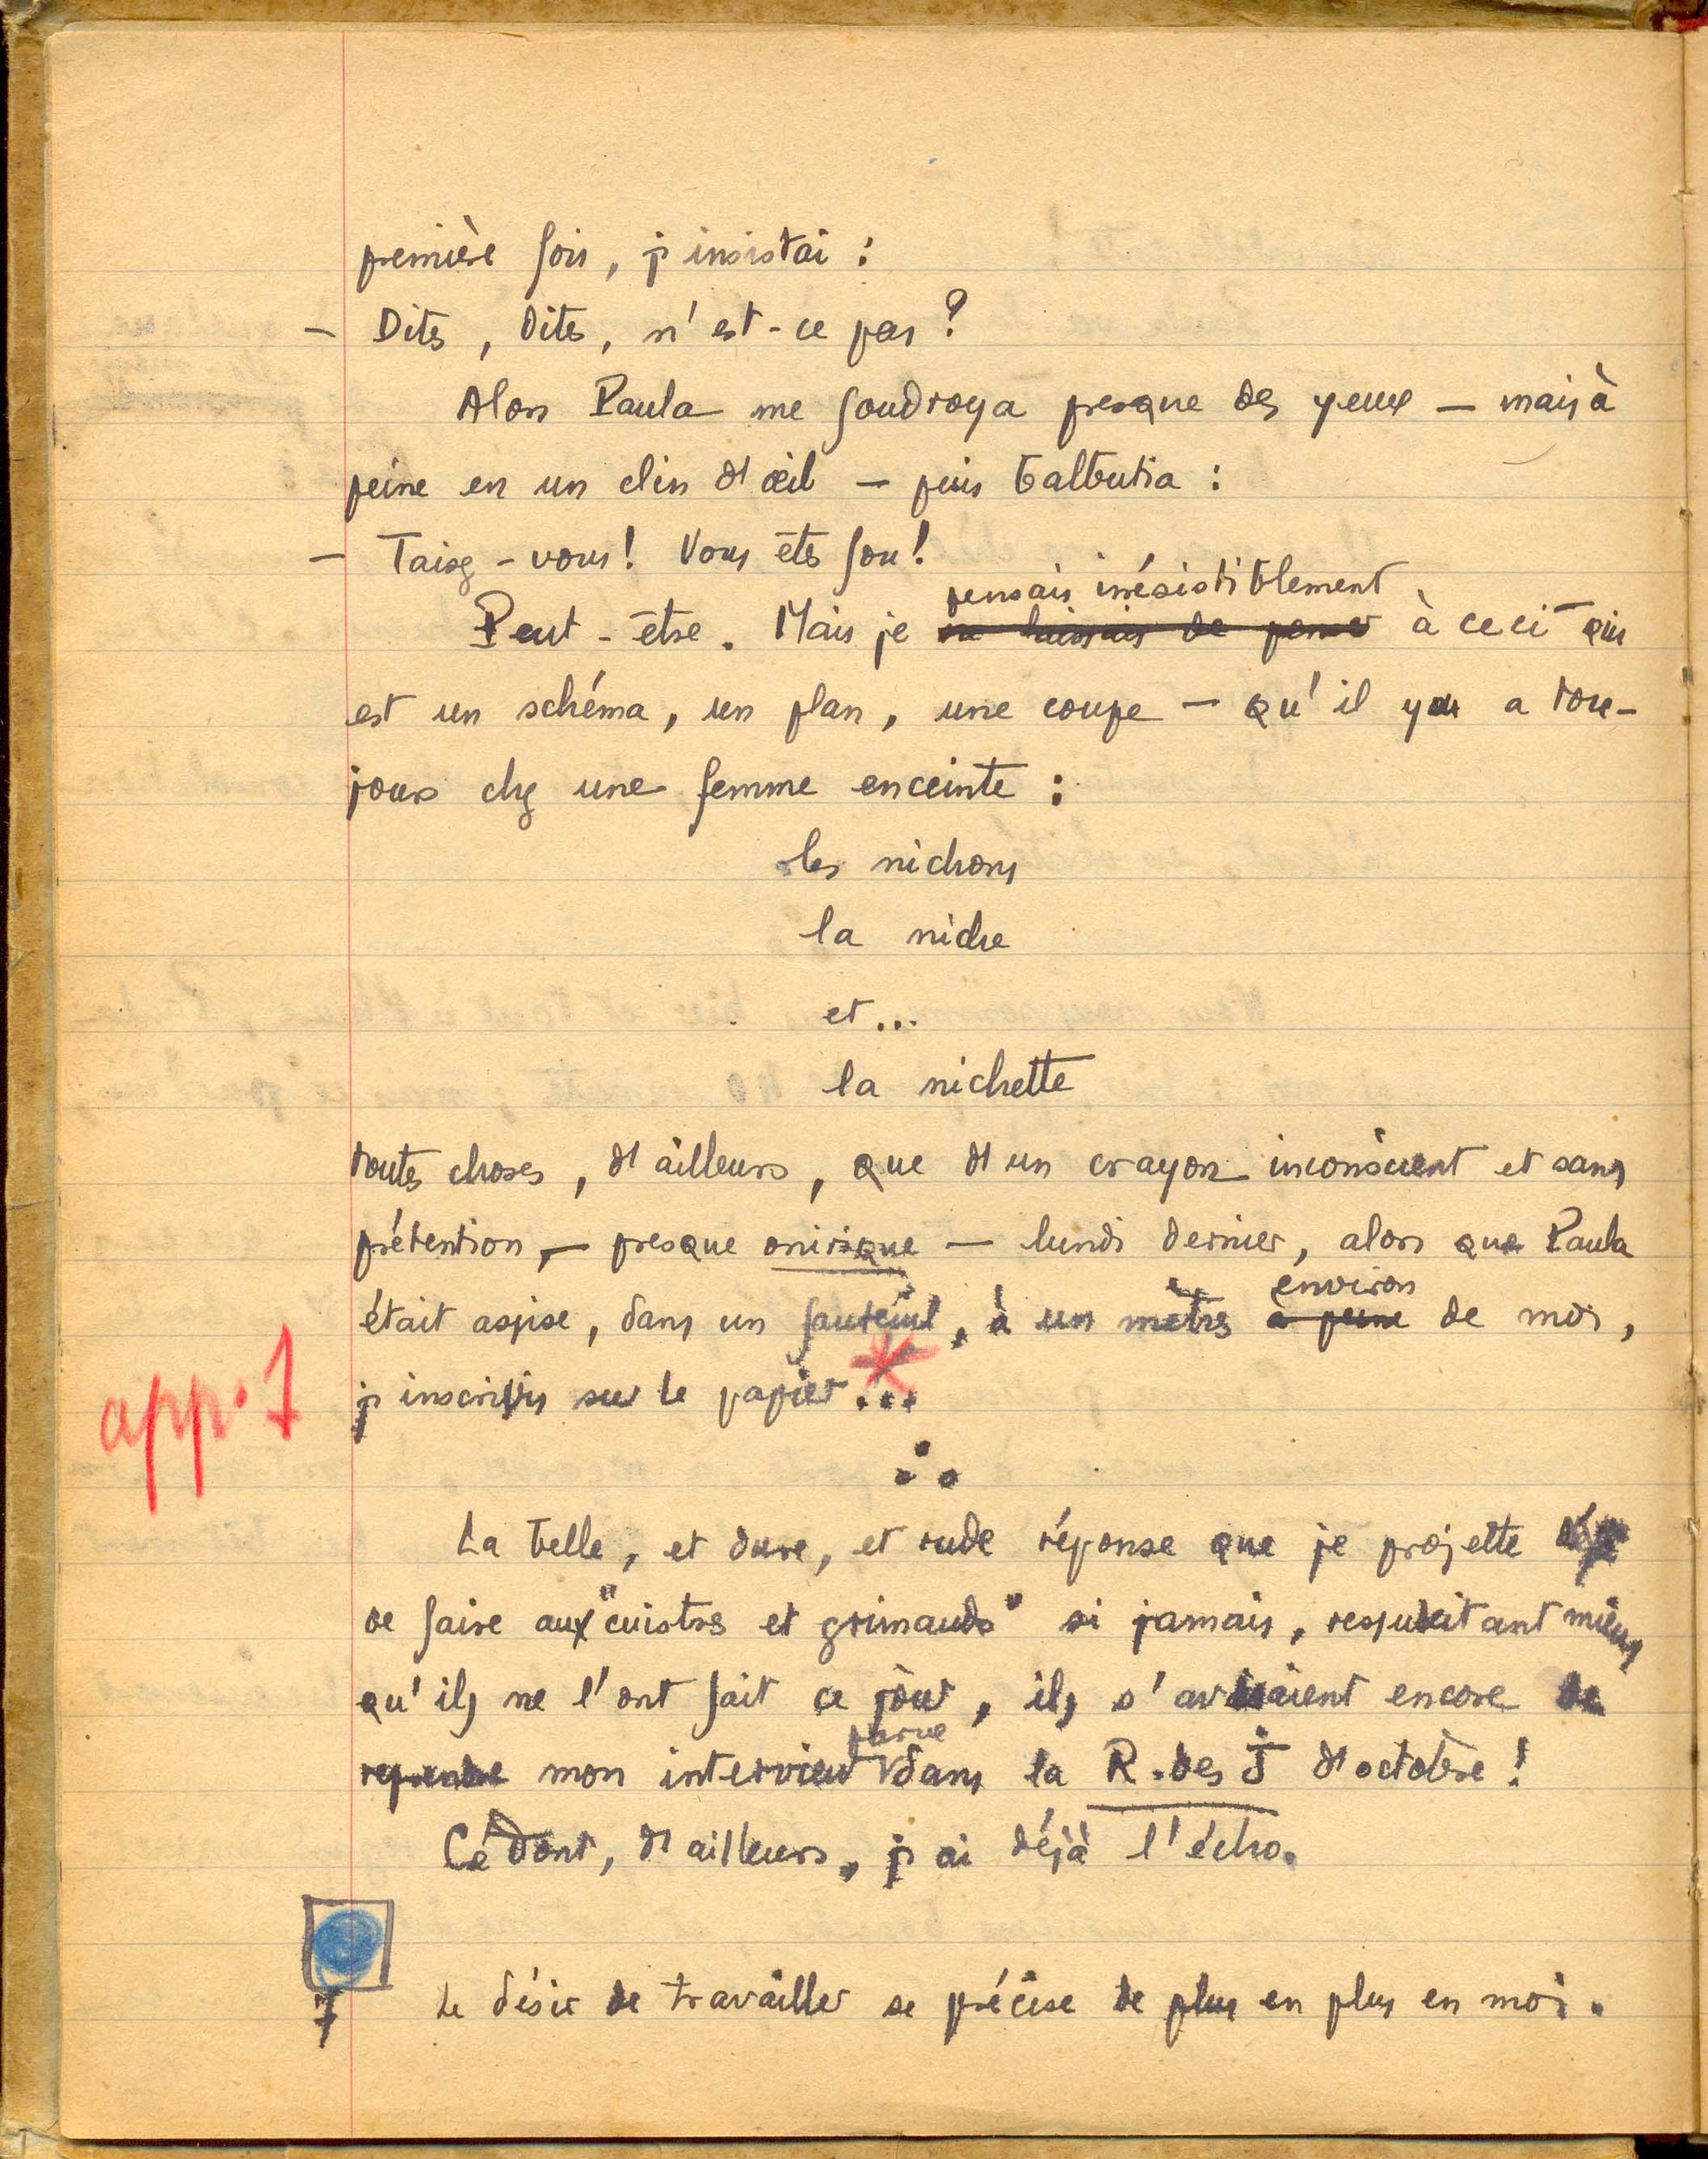 première fois, j'insistai :
– Dites, dites, n'est-ce pas ?
Alors Paula me foudroya presque des yeux – mais à
peine en un clin d'œil – puis balbutia :
– Taisez-vous ! Vous êtes fou !
pensais irrésistiblement
Peut-être. Mais je à ceci – qui
est un schéma, un plan, une coupe – qu'il y a tou-
jours chez une femme enceinte :
les nichons
la niche
et...
la nichette
toutes choses, d'ailleurs, que d'un crayon inconscient et sans
prétention, – presque onirique – lundi dernier, alors que Paula
environ
était assise, dans un fauteuil, à un mètre à peine de moi,
app. 1 j'inscrivis sur le papier...
La belle, et dure, et rude réponse que je projette
de faire aux "cuistres et grimauds" si jamais, mieux
qu'ils ne l'ont fait ce jour, ils s'avisaient encore de
parue
reprendre mon interview dans la R. des J d'octobre !
Ce dont, d'ailleurs, j'ai déjà l'écho.
7 Le désir de travailler se précise de plus en plus en moi.